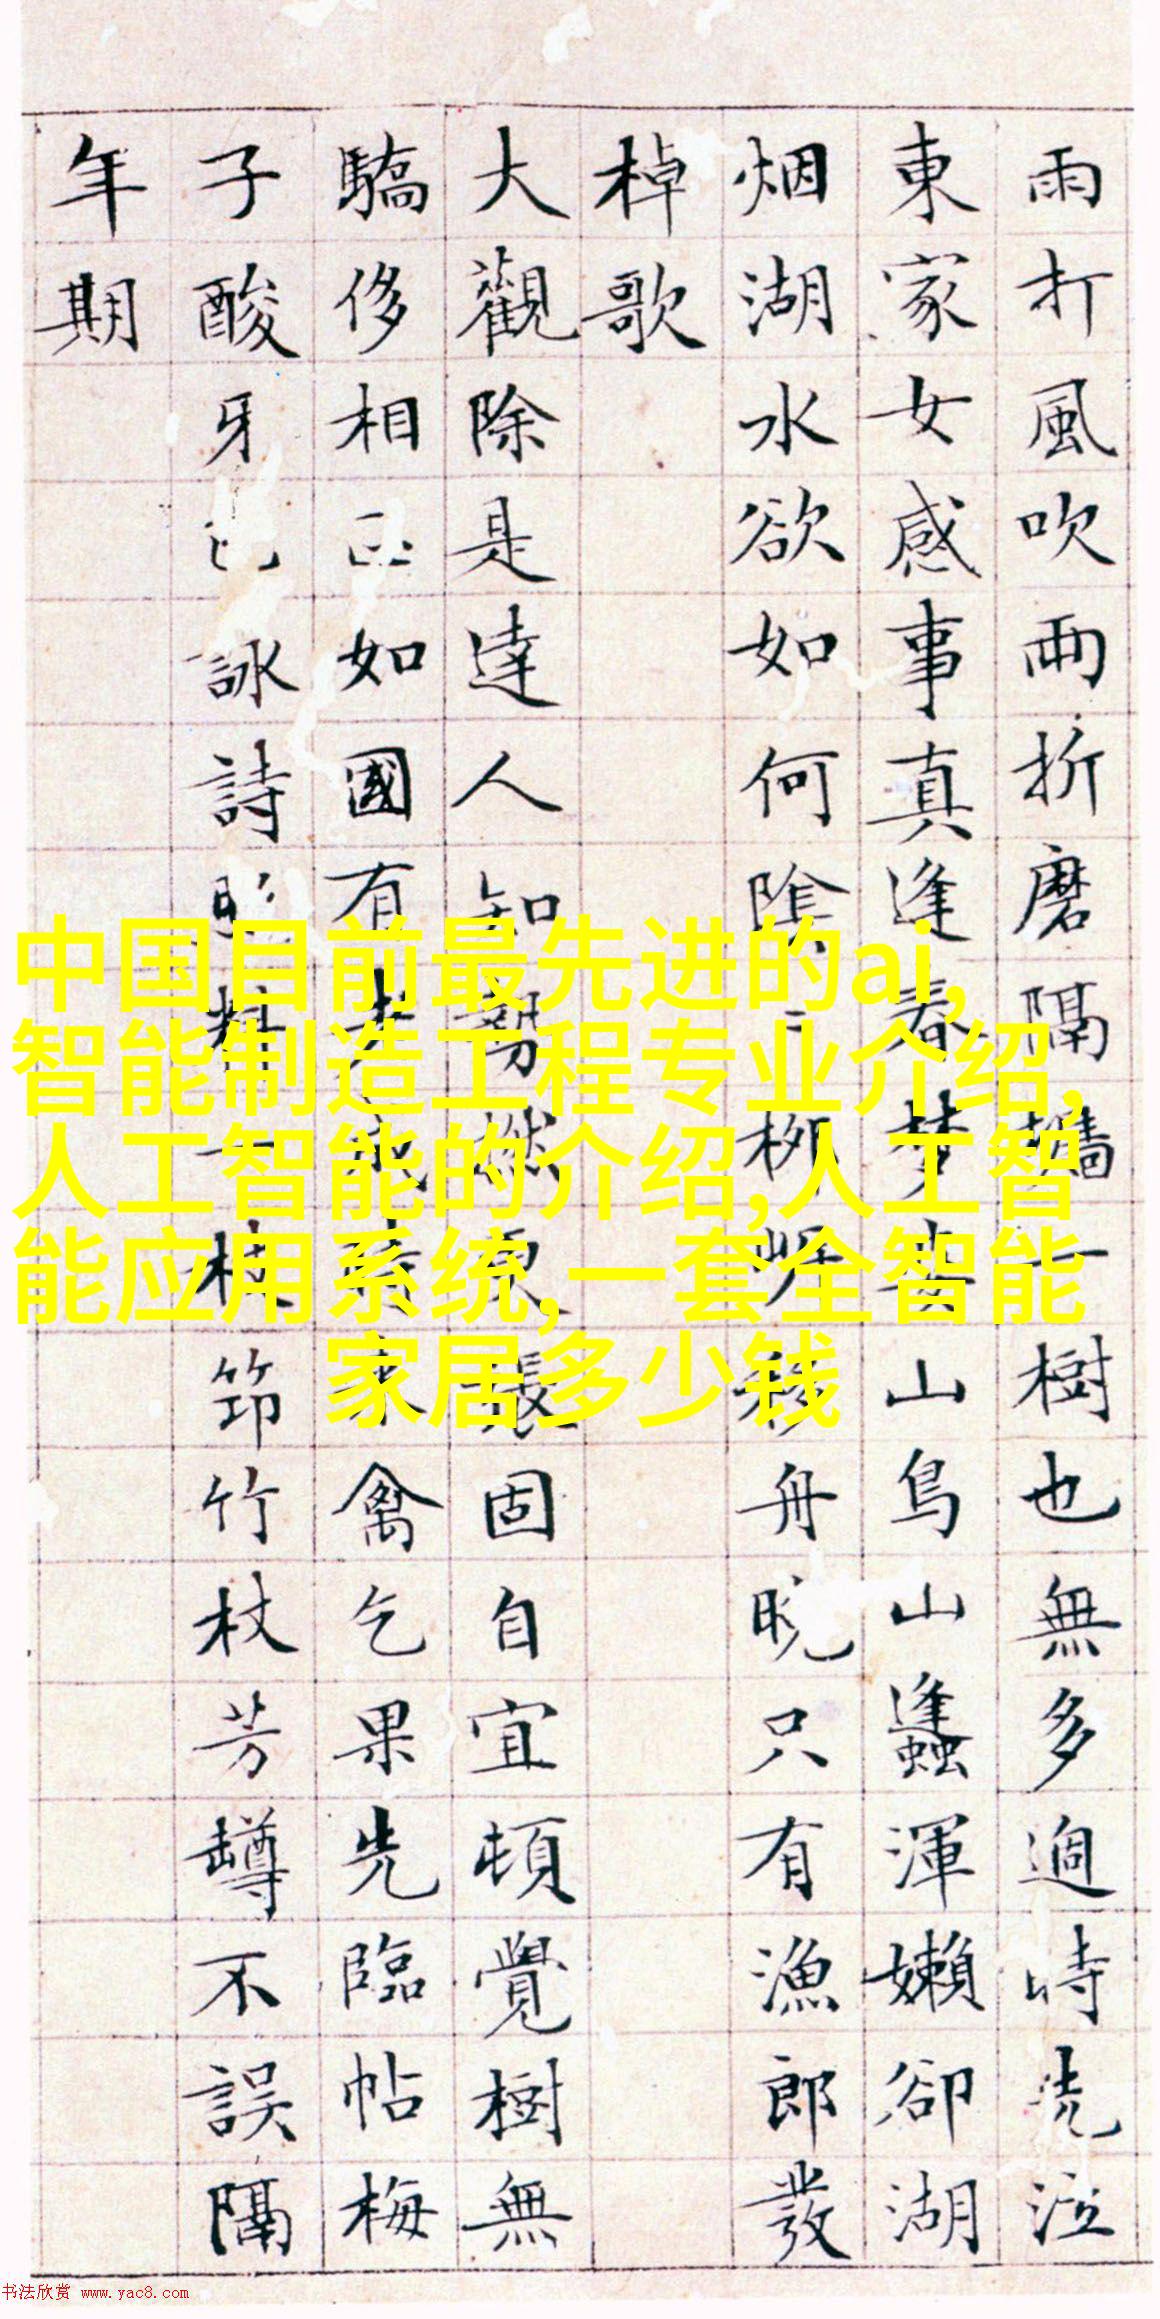 雨打風吹兩折磨隔牆一樹也無多過時洗泣
東家女感事真逢春夢山鳥山蠭渾嬾卻湖
烟湖水欲如何陰柳移舟晚只有漁郎發
棹歌
大觀除是達人知勢燄東張固自宜頓覺樹無
驕侈相如國有來禽乞果先臨帖梅
子酸牙詠詩料一枝筇竹杖芳罇不誤隔
年期
中国目前最先进的ai,
智能制造工程专业介绍,
人工智能的介绍,人工智
能应用系统,一套全智能
家居多少钱
书法欣赏 www.yac8.com